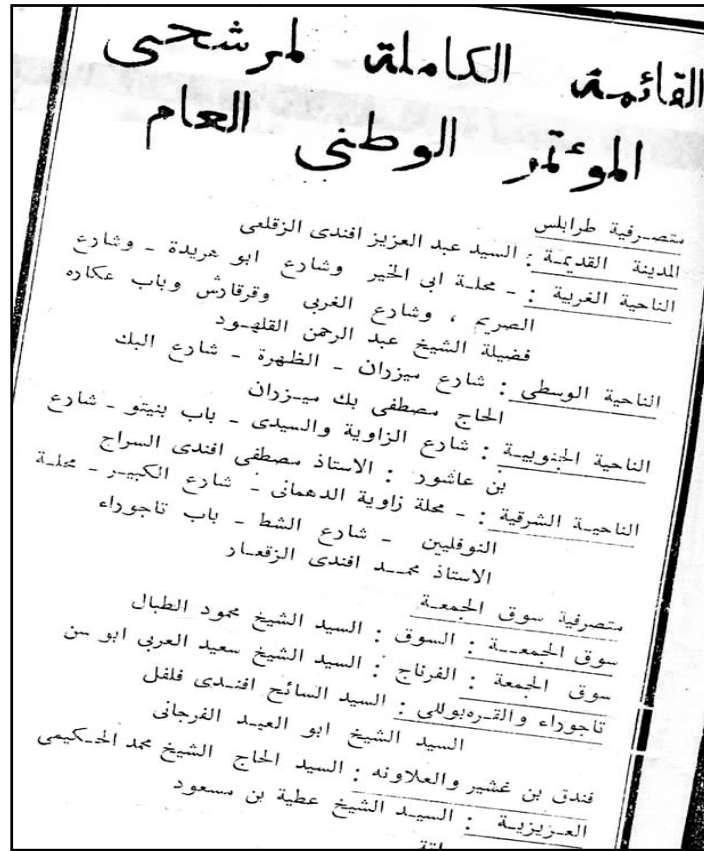 القائمة الكاملة لمرشحى
الموءتمر الوطنى العام
متصرفية طرابلس
المدينة القديمة : السيد عبد العزيز افندى الزقلعى
الناحية الغربية : - محلة ابى الخير وشارع ابو هريدة - وشارع
الصريم ، وشارع الغربى وقرقارش وباب عكاره
فضيلة الشيخ عبد الرحمن القلهود
الناحية الوسطى : شارع ميزران - الظهرة - شارع البك
الحاج مصطفى بك ميزران
الناحية الجنوبية : شارع الزاوية والسيدى - باب بنيتو - شارع
بن عاشور : الاستاذ مصطفى افندى السراج
الناحية الشرقية : - محلة زاوية الدهمانى - شارع الكبير - محلة
النوفليين - شارع الشط - باب تاجوراء
الاستاذ محمد افندى الزقعار
متصرفية سوق الجمعة
سوق الجمعة : السوق : السيد الشيخ محمود الطبال
سوق الجمعة : الفرناج : السيد الشيخ سعيد العربى ابو سن
تاجوراء والقره‌بوللى : السيد السائح افندى فلفل
السيد الشيخ ابو العيد الفرجانى
فندق بن غشير والعلاونه : السيد الحاج الشيخ محمد الحكيمى
العزيزية : السيد الشيخ عطية بن مسعود